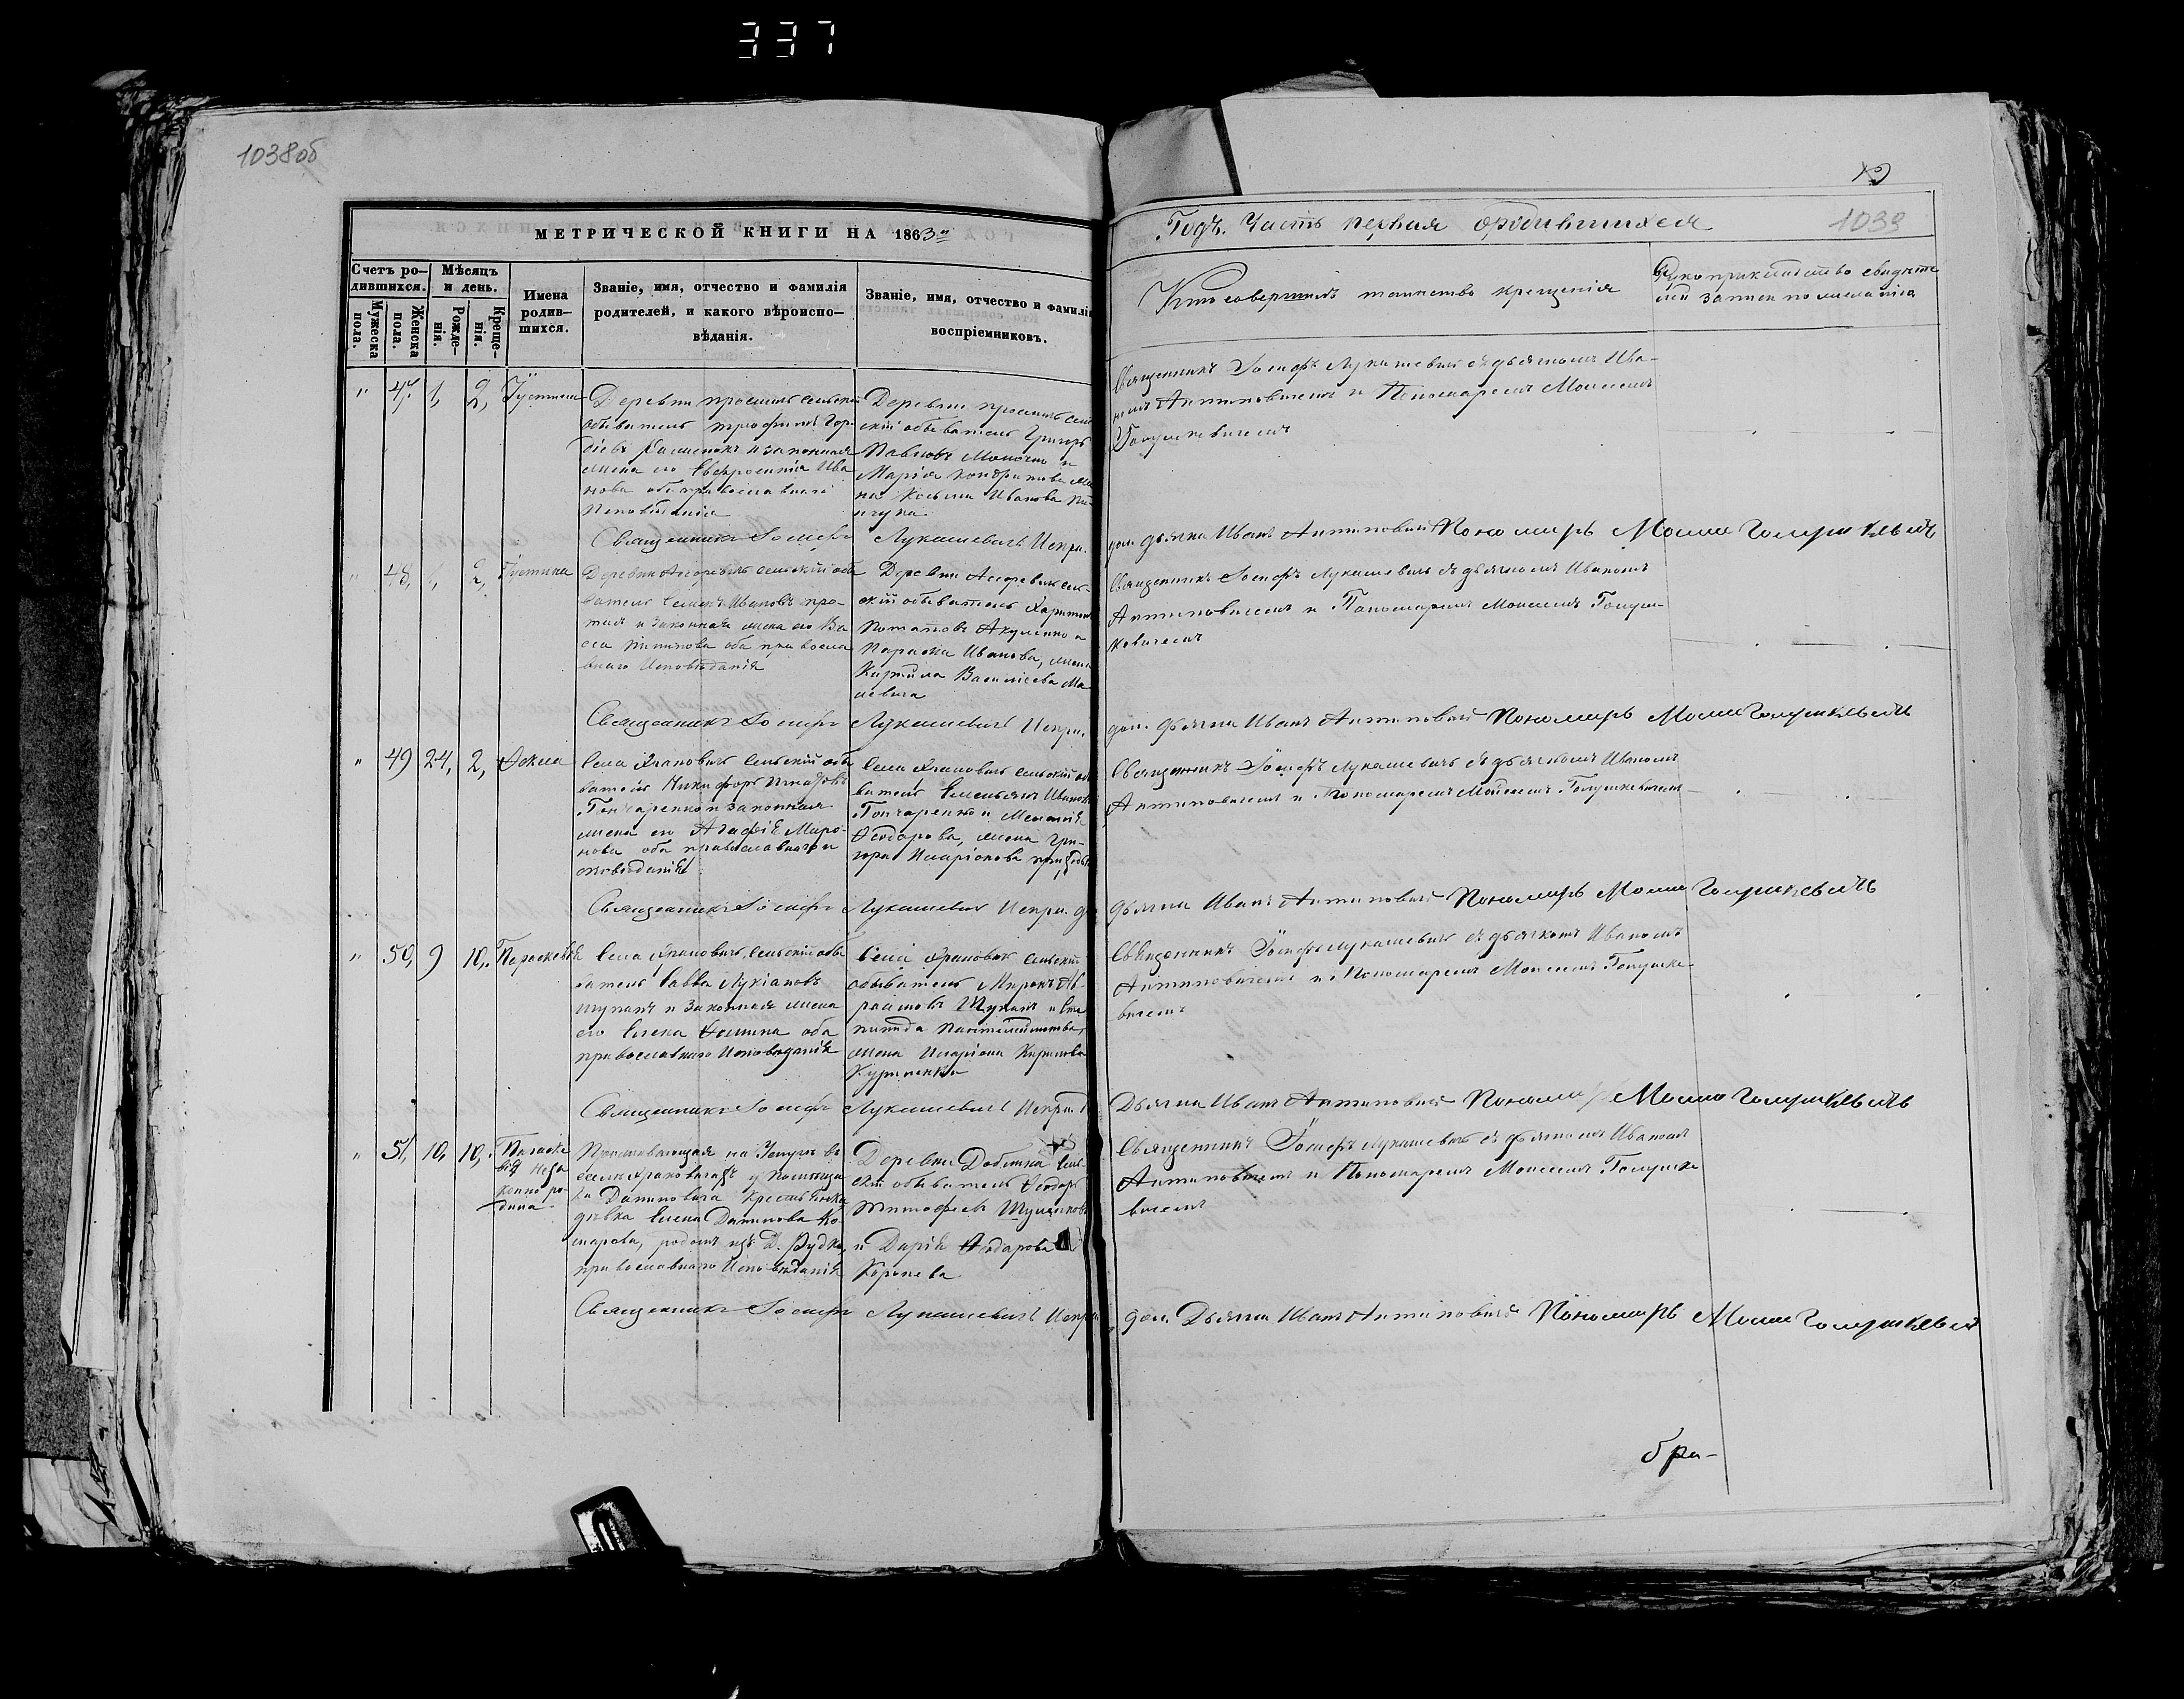 337
1038об
МЕТРИЧЕСКОЙ КНИГИ НА 1863й
Счетъ ро-
дившихся.
Мужеска
пола.
Женска
пола.
Мѣсяцъ
и день.
Рожде-
нія.
Креще-
нія.
Имена
родив-
шихся.
Званіе, имя, отчество и фамилія
родителей, и какого вѣроиспо-
вѣданія.
Званіе, имя, отчество и фамилія
воспріемниковъ.
" 47. 1, 2, Іустина
Деревни
обыватель Трофимъ Гор-
діевъ и законная
жена его Евфросинія Ива
нова оба православнаго
Исповѣданія
Деревни
скій обыватель Григорій
Павловъ и
Марія Кондратова же
на Иванова
Священникъ Іосифъ Лукашевичъ Испра.
" 48, 1, 2, Іустина
Деревни сельскій обы
ватель Семенъ Ивановъ
и законная жена его Ва
сса оба православ
наго Исповѣданія
Деревни сель-
скій обыватель Харитонъ
Потаповъ Акуленко и
Параска Иванова, жена
Кирилла Василіева
Священникъ Іосифъ Лукашевичъ Испра.
" 49 24, 2, Ѳекла
Села сельскій обы
ватель Никифоръ
Гончаренко и законная
жена его Агафія Миро-
нова оба православнаго и
сповѣданія
Села сельскій обы
ватель Емельянъ Ивановъ
Гончаренко и Меланія
Ѳеодорова, жена Гри-
горія Иларіонова
Священникъ Іосифъ Лукашевичъ Испра. до
" 50, 9 10, Параскевія
Села сельскій обы
ватель Савва Лукіановъ
и законная жена
его Елена Ѳомина оба
православнаго Исповѣданія
Села сельскій
обыватель Миронъ Аб-
рамовъ и
жена Иларіона Кирилова
Куриленка
Священникъ Іосифъ Лукашевичъ Исправ.
" 51, 10, 10, Параске
вія неза
конно ро-
ждена
Проживающая на въ
селѣ у
крестьянка
дѣвка Елена Данилова Ко
марова, родомъ изъ Д. Рудки,
православнаго Исповѣданія
Деревни сель-
скій обыватель Ѳеодоръ
Тимофеевъ
и Дарія Ѳеодорова
Королева
Священникъ Іосифъ Лукашевичъ Испра
1039
Годъ. Часть первая о родившихся
Кто совершалъ таинство крещенія
Рукоприкладство свидѣте
лей записи по желанію
Священникъ Іосифъ Лукашевичъ съ дьячкомъ Ива-
номъ Антиповичемъ и Пономаремъ Моисеемъ
Голушкевичемъ
дол. дьячка Иванъ Антиповичъ Пономарь Моисей Голушкевичъ
Священникъ Іосифъ Лукашевичъ съ дьячкомъ Иваномъ
Антиповичемъ и Пономаремъ Моисеемъ Голуш-
кевичемъ
дол. дьячка Иванъ Антиповичъ Пономарь Моисей Голушкевичъ
Священникъ Іосифъ Лукашевичъ съ дьячкомъ Иваномъ
Антиповичемъ и Пономаремъ Моисеемъ Голушкевичемъ
дьячка Иванъ Антиповичъ Пономарь Моисей Голушкевичъ
Священникъ Іосифъ Лукашевичъ съ дьячкомъ Иваномъ
Антиповичемъ и Пономаремъ Моисеемъ Голушке-
вичемъ
Дьячка Иванъ Антиповичъ Пономарь Моисей Голушкевичъ
Священникъ Іосифъ Лукашевичъ съ дьячкомъ Иваномъ
Антиповичемъ и Пономаремъ Моисеемъ Голушке
вичемъ
дол. Дьячка Иванъ Антиповичъ Пономарь Моисей Голушкевичъ
бра-